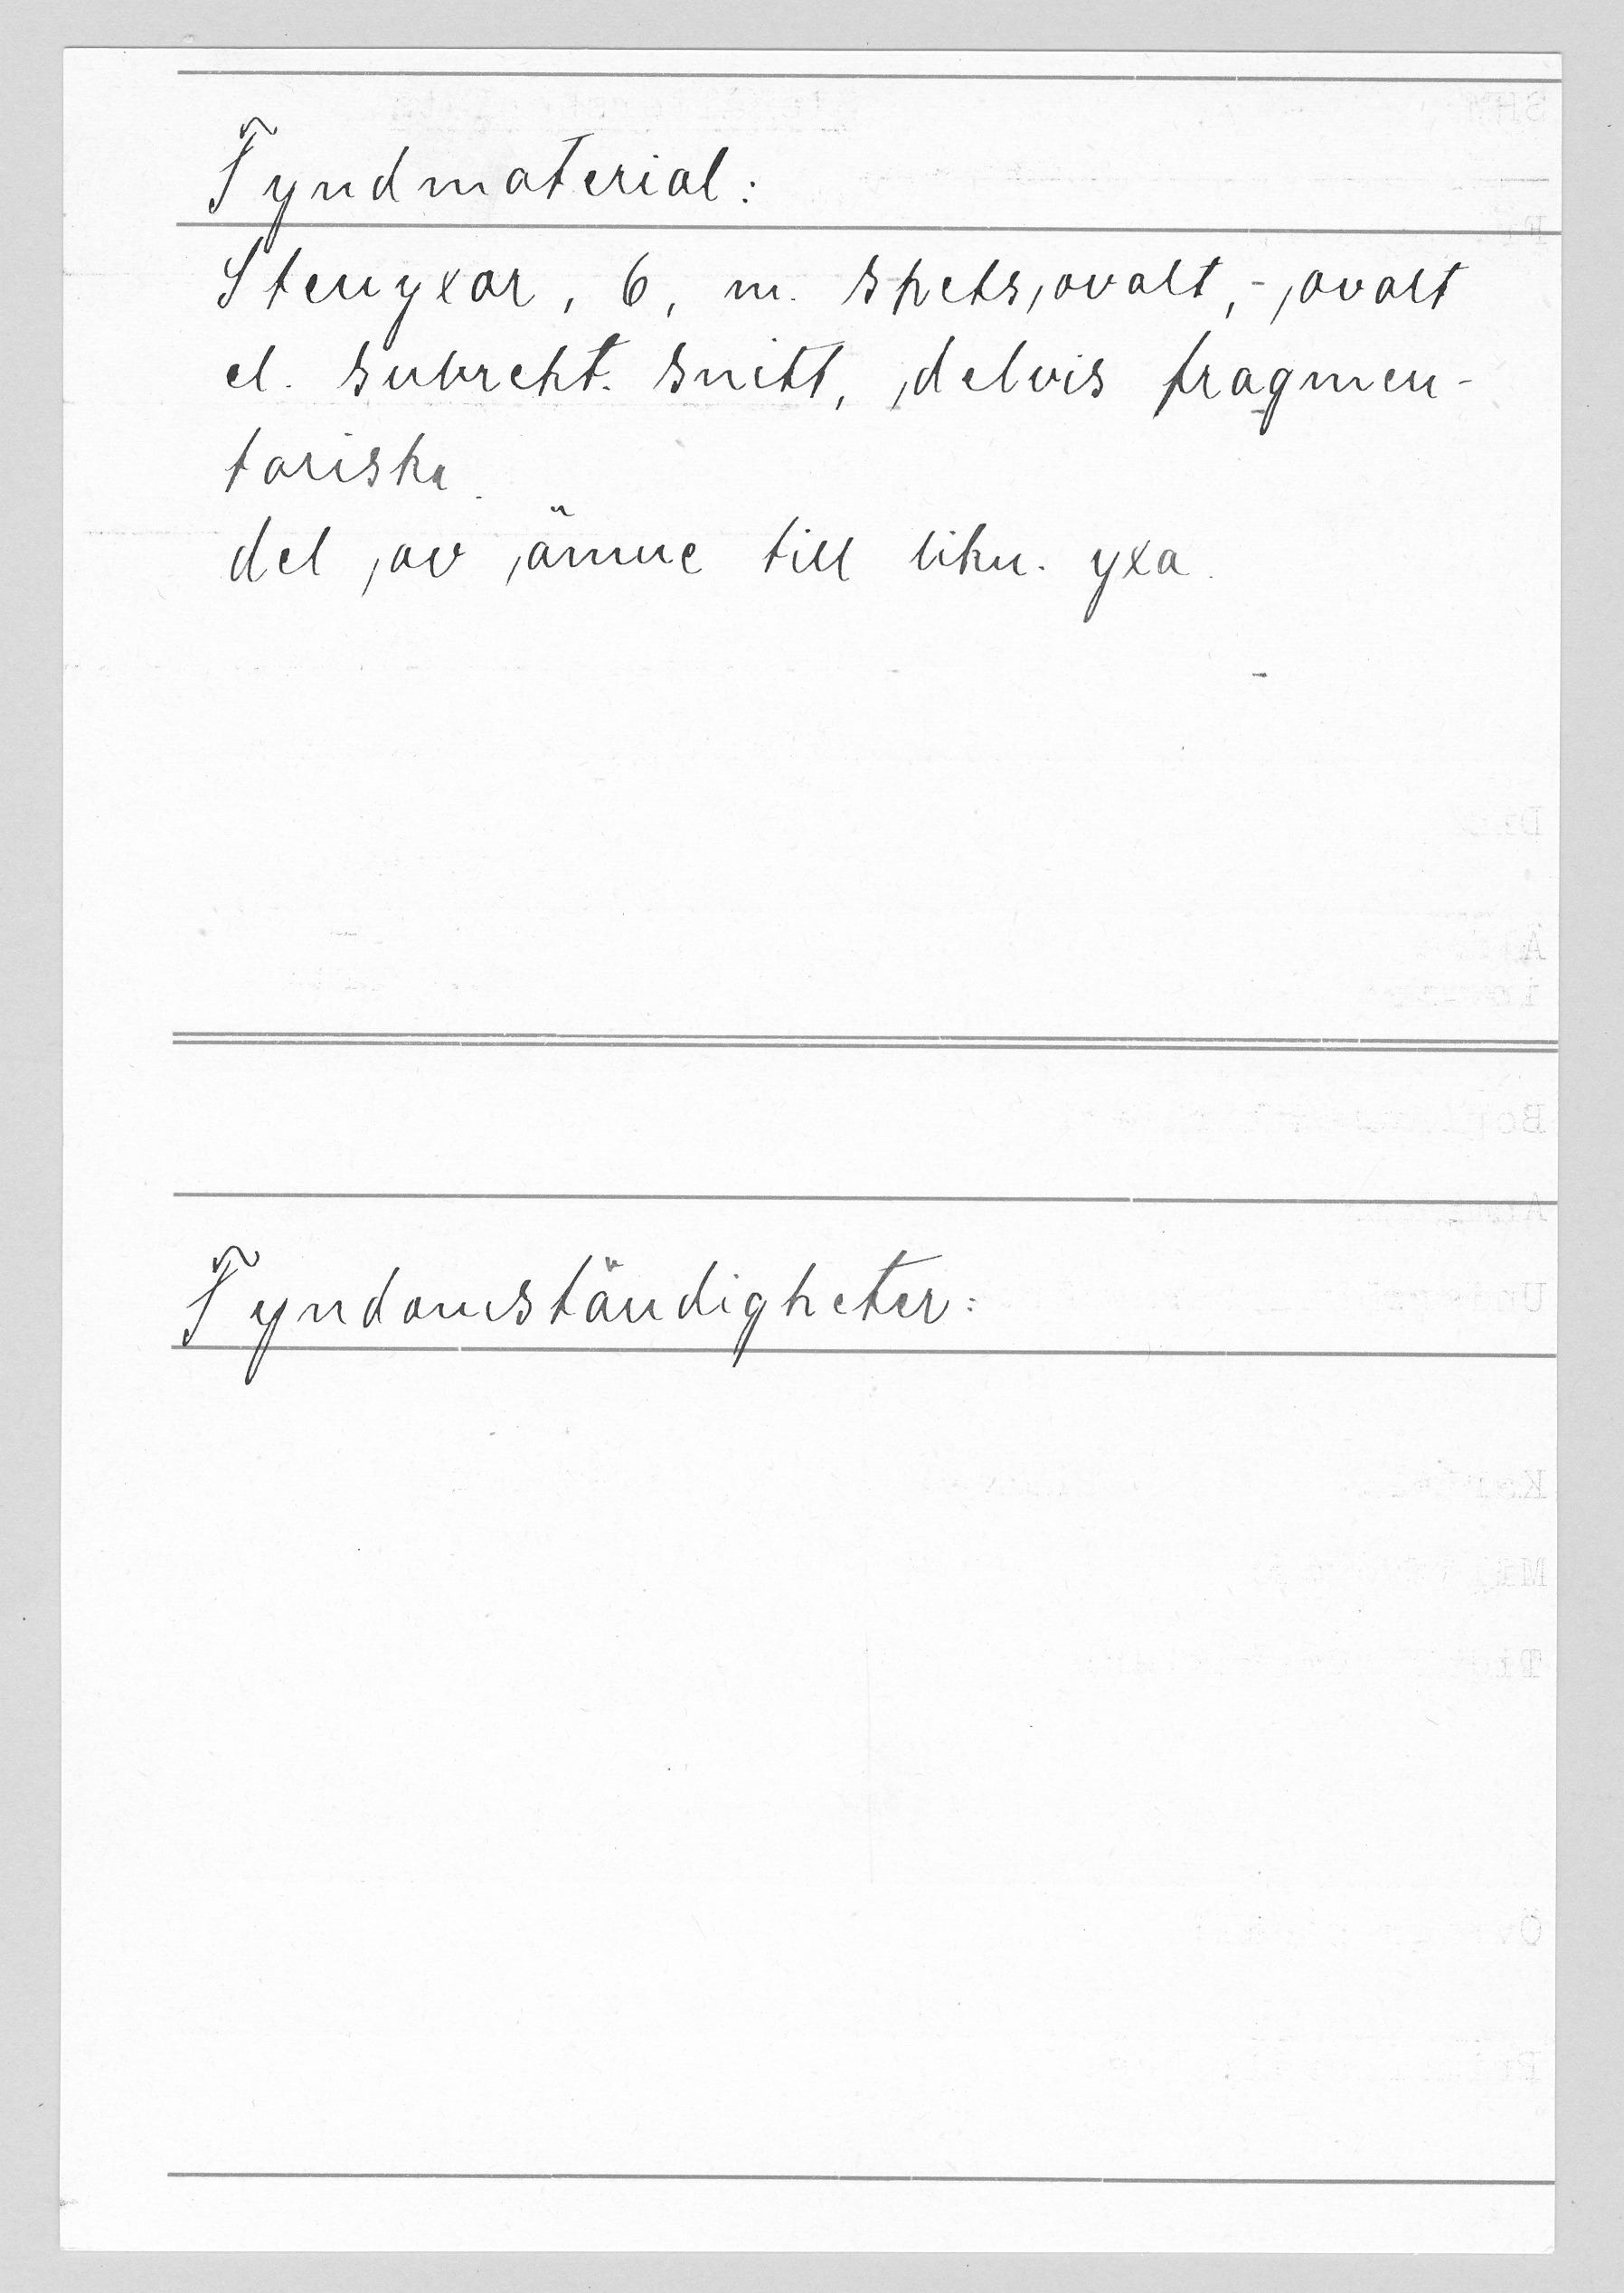 Fyndmaterial:
Stenyxor, 6, m. spetsovalt, - ovalt
el. subrekt. snitt, delvis fragmen-
tariska.
del av ämne till likn. yxa.
Fyndomständigheter: